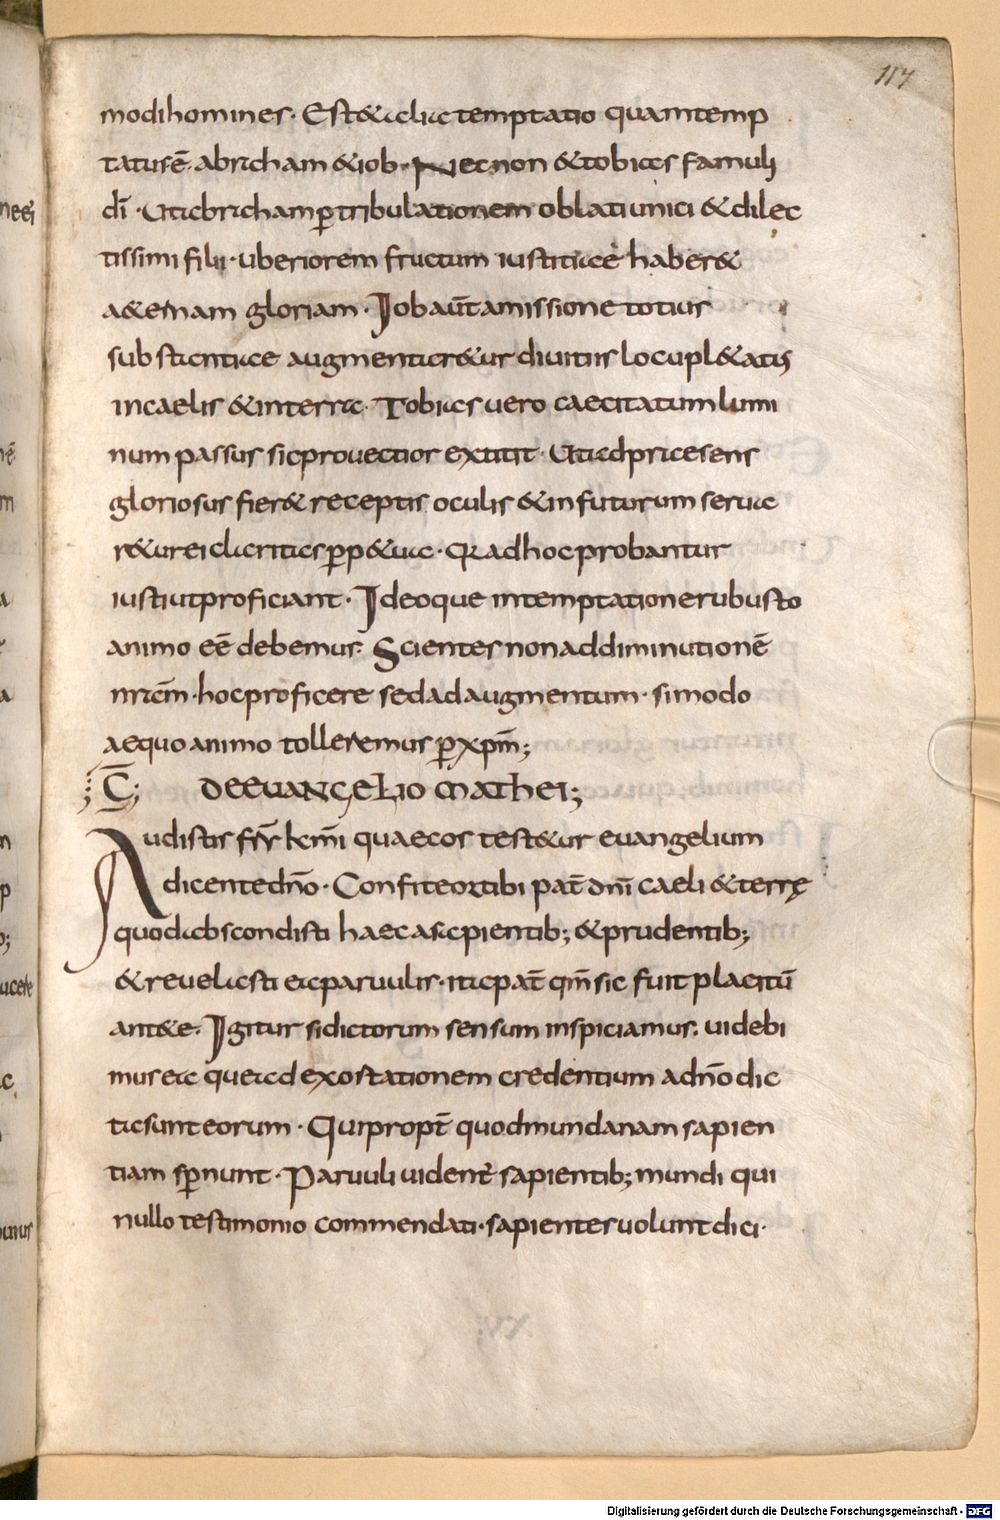 117
modi homines · Est & alia temptatio quam temp
tatus ē · abraham & iob · Nec non & tobias famuli
dī · Ut abraham p̱ tribulationem oblati unici & dilec
tissimi filii · uberiorem fructum iustitiae haber&
a&ernam gloriam · Iob aūt amissione totius
substantiae augmentar&ur diuitiis locupl&atis
in caelis & in terra · Tobias uero caecitatum lumi
num passus sic prouectior extitit · Ut ad praesens
gloriosus fier& receptis oculis & in futurum serua
r&ur ei claritas p̱p&ua · Qr ad hoc probantur
iusti ut proficiant · Ideoque in temptatione rubusto
animo eē debemus · Scientes non ad diminutionē
nrām · hoc proficere sed ad augmentum · si modo
aequo animo tolleremus p̱ xpm̄;
T̄; DE EVANGELIO MATHEI;
Audistis ff̄r km̄i quae cos test&ur euangelium
dicente dn̄o · Confiteor tibi pat̄ dn̄i caeli & terrę
quod abscondisti haec a sapientib; & prudentib;
& reuelasti ea paruulis · ita pat̄ qm̄ sic fuit placitū
ante · Igitur si dictorum sensum inspiciamus · uidebi
mus ea quae ad exostationem credentium a dn̄o dic
ta sunt eorum · Qui propt̄ quod mundanam sapien
tiam sp̱nunt · Paruuli uident̄ sapientib; mundi qui
nullo testimonio commendati · sapientes uolunt dici ·
Digitalisierung gefördert durch die Deutsche Forschungsgemeinschaft - DFG